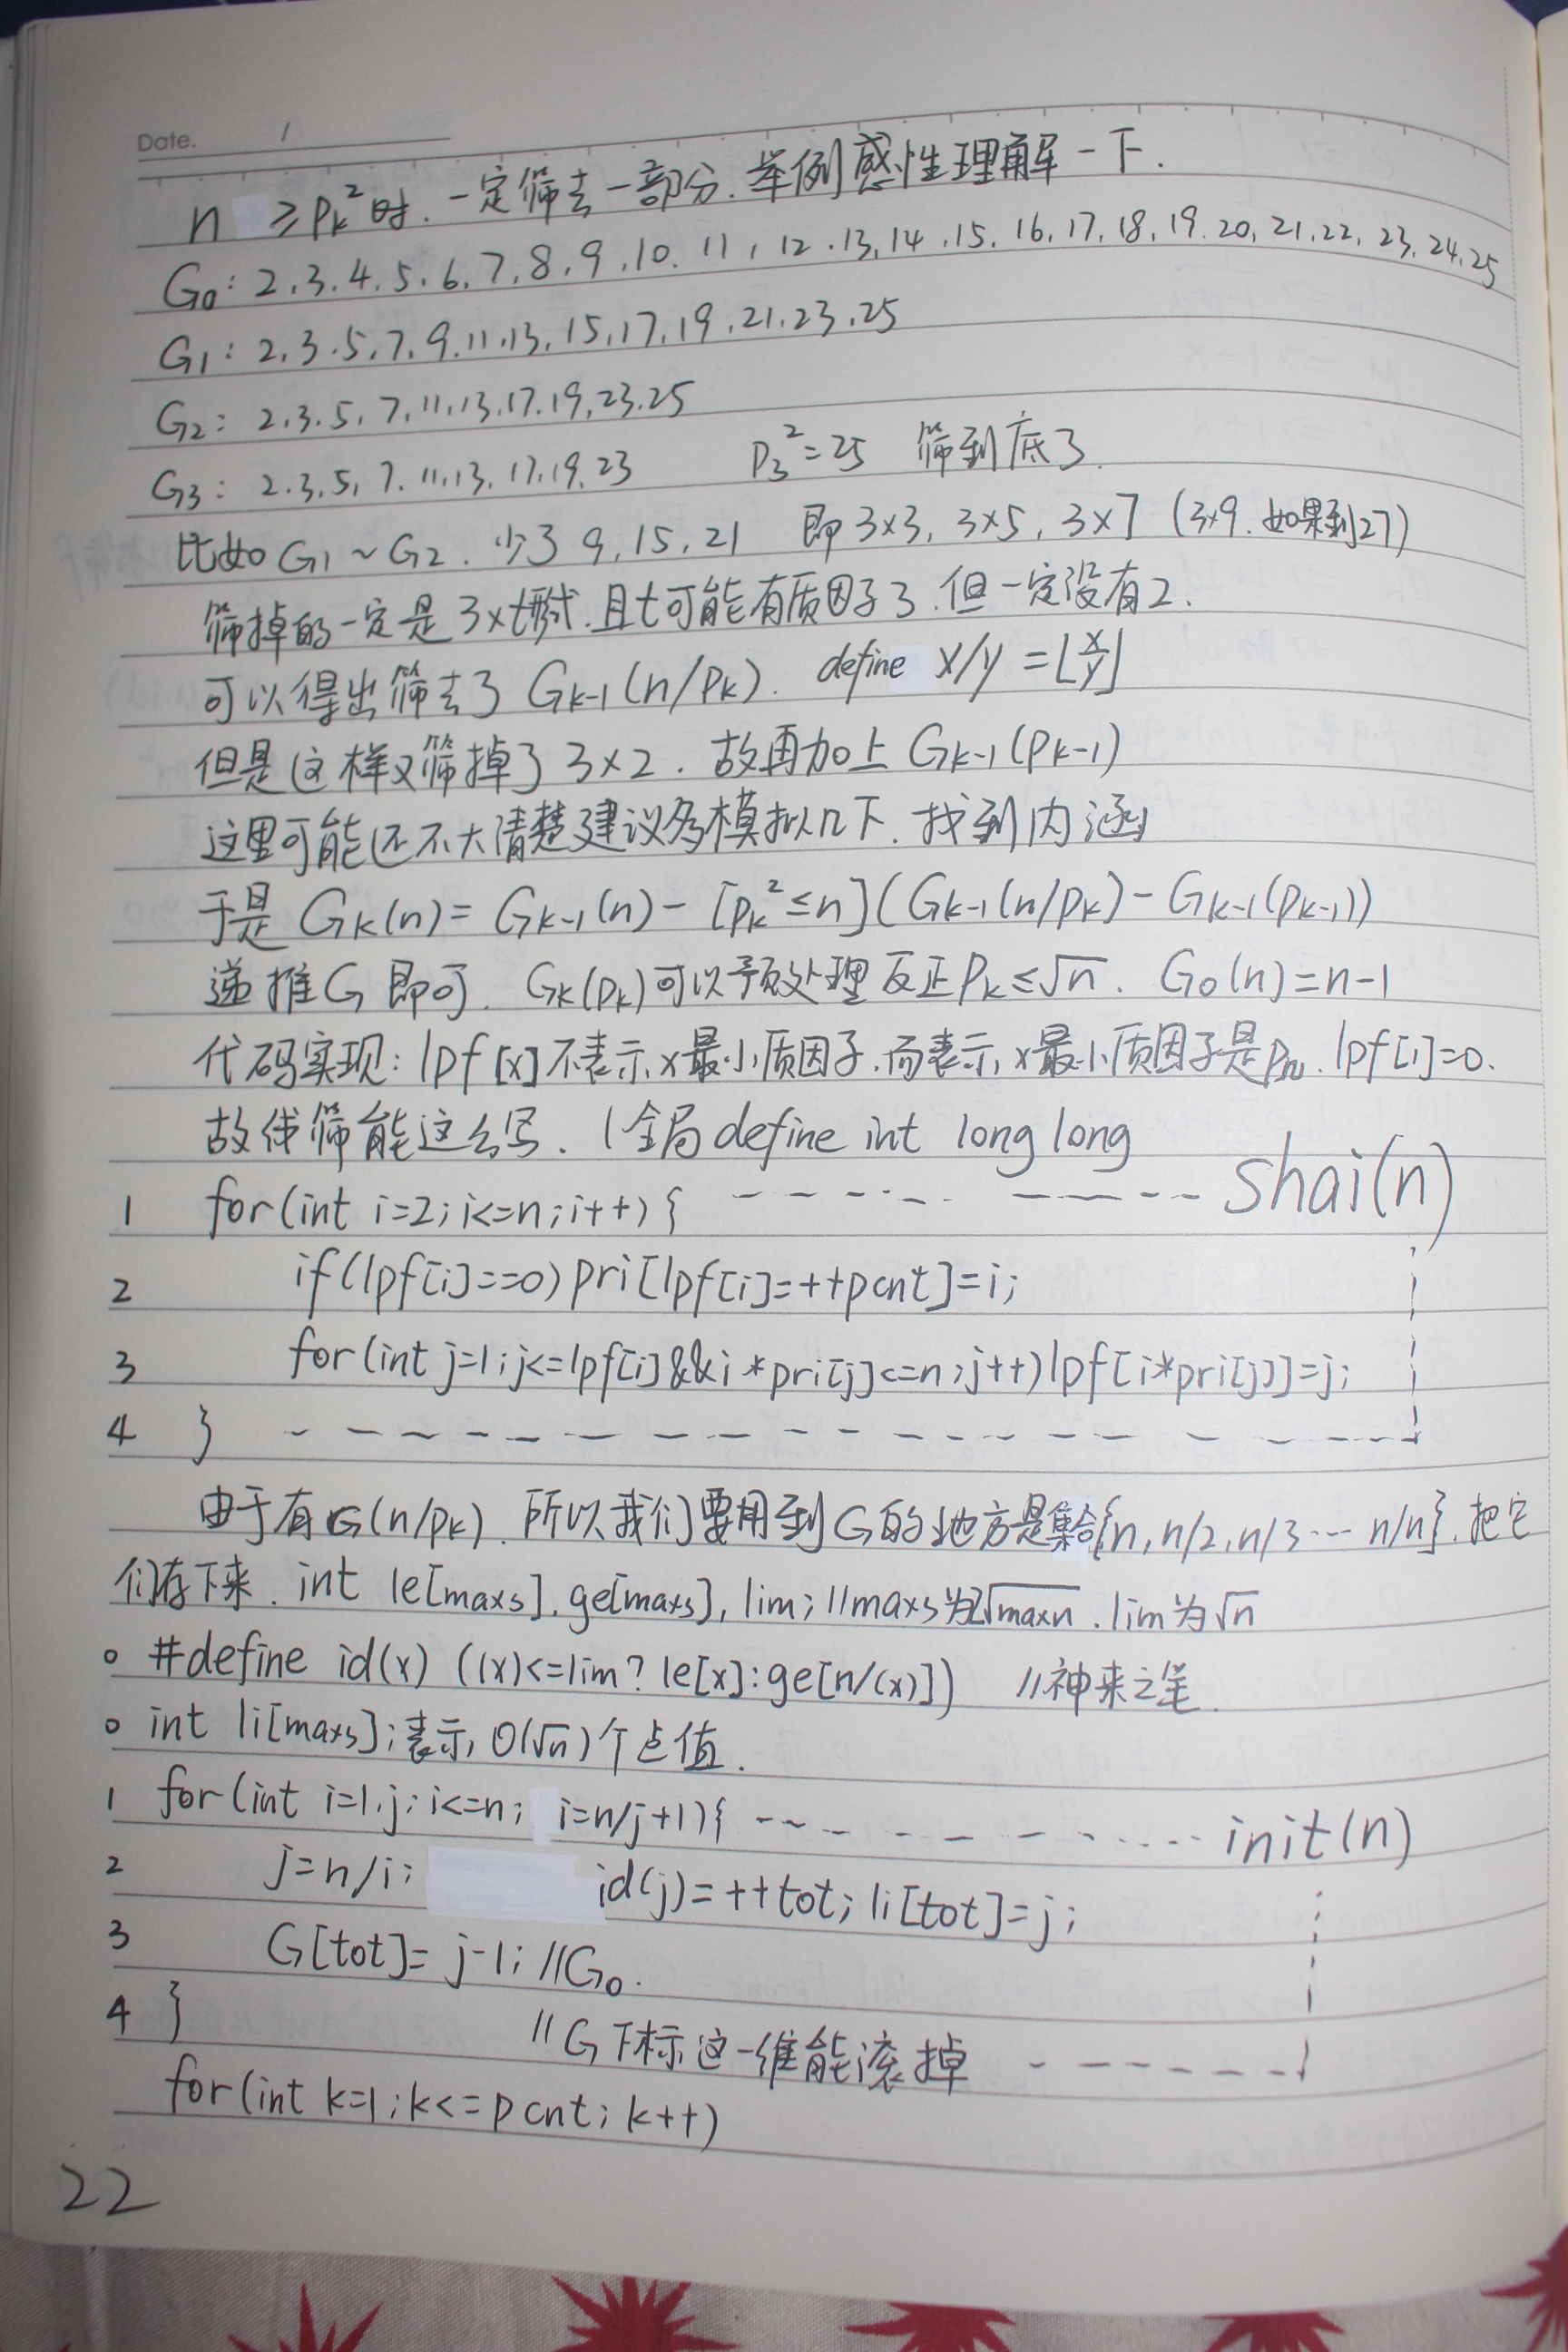 Date. /
n ≥ Pk²时.一定筛去一部分.举例感性理解一下.
G0: 2.3.4.5.6.7.8.9.10.11, 12.13,14.15.16.17.18.19.20,21.22.23.24.25
G1: 2.3.5.7.9.11.13.15.17.19.21.23.25
G2: 2.3.5.7.11.13.17.19.23.25
G3: 2.3.5.7.11.13.17.19.23 P3²=25 筛到底了.
比如G1~G2.少了9,15,21 即3×3, 3×5, 3×7 (3×9.如果到27)
筛掉的一定是3×t形式.且t可能有质因子3.但一定没有2.
可以得出筛去了Gk-1(n/Pk). define x/y=⌊x/y⌋
但是这样又筛掉了3×2.故再加上Gk-1(Pk-1)
这里可能还不大清楚建议多模拟几下.找到内涵
于是Gk(n)=Gk-1(n)-[Pk²≤n](Gk-1(n/Pk)-Gk-1(Pk-1))
递推G即可. Gk(Pk)可以预处理反正Pk≤√n. G0(n)=n-1
代码实现:lpf[x]不表示x最小质因子.而表示x最小质因子是Pn.lpf[i]=0.
故线筛能这么写.(全局define int long long
1 for(int i=2;i<=n;i++){ shai(n)
2 if(lpf[i]==0)pri[lpf[i]=++pcnt]=i;
3 for(int j=1;j<=lpf[i]&&i*pri[j]<=n;j++)lpf[i*pri[j]]=j;
4 }
由于有G(n/Pk).所以我们要用到G的地方是集合{n,n/2,n/3…n/n}.把它
们存下来.int le[maxs],ge[maxs],lim;//maxs为2√maxn.lim为√n
○ #define id(x) ((x)<=lim?le[x]:ge[n/(x)]) //神来之笔.
○ int li[maxs];表示O(√n)个点值.
1 for(int i=1,j;i<=n; i=n/j+1){ init(n)
2 j=n/i; id(j)=++tot;li[tot]=j;
3 G[tot]=j-1;//G0.
4 }
//G下标这一维能滚掉
for(int k=1;k<=pcnt;k++)
22